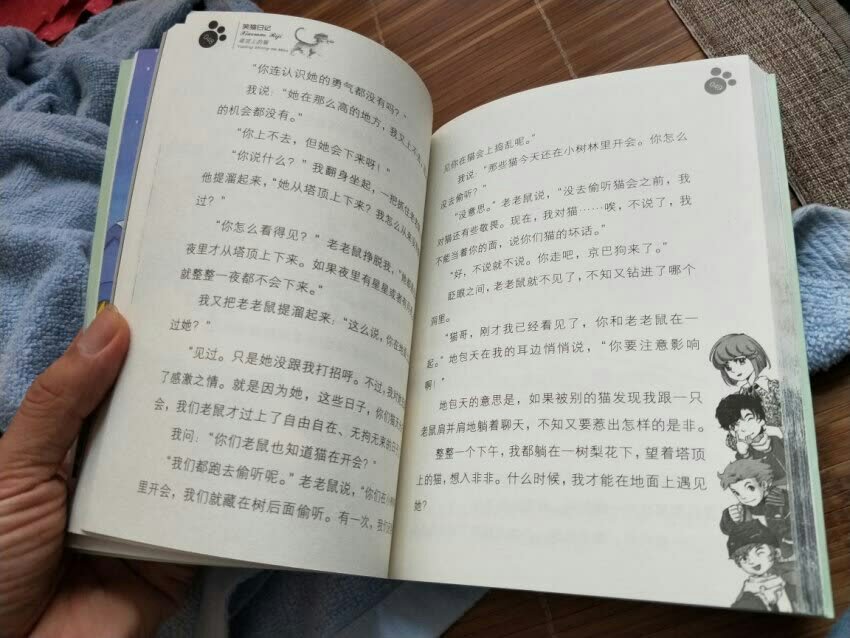 笑猫日记
Xiaomao Riji
塔顶上的猫
"你连认识她的勇气都没有吗?"
我说:"她在那么高的地方,我又上不去,
的机会都没有。"
"你上不去,但她会下来呀!"
"你说什么?"我翻身坐起,一把抓住老
他提溜起来,"她从塔顶上下来?我怎么从来
过?"
"你怎么看得见?"老老鼠挣脱我,
夜里才从塔顶上下来。如果夜里有星星或者有
就整整一夜都不会下来。"
我又把老老鼠提溜起来:"这么说,你在
过她?"
"见过。只是她没跟我打招呼。不过,我
了感激之情。就是因为她,这些日子,你们猫天
会,我们老鼠才过上了自由自在、无拘无束的日子
我问:"你们老鼠也知道猫在开会?"
"我们都跑去偷听呢。"老老鼠说,"你们在小
里开会,我们就藏在树后面偷听。有一次,我
049
见你在猫会上捣乱呢。"
我说:"那些猫今天还在小树林里开会。你怎么
没去偷听?"
"没意思。"老老鼠说,"没去偷听猫会之前,我
对猫还有些敬畏。现在,我对猫……唉,不说了,我
不能当着你的面,说你们猫的坏话。"
"好,不说就不说。你走吧,京巴狗来了。"
眨眼之间,老老鼠就不见了,不知又钻进了哪个
洞里。
"猫哥,刚才我已经看见了,你和老老鼠在一
起。"地包天在我的耳边悄悄说,"你要注意影响
啊!"
地包天的意思是,如果被别的猫发现我跟一只
老鼠肩并肩地躺着聊天,不知又要惹出怎样的是非。
整整一个下午,我都躺在一树梨花下,望着塔顶
上的猫,想入非非。什么时候,我才能在地面上遇见
她?